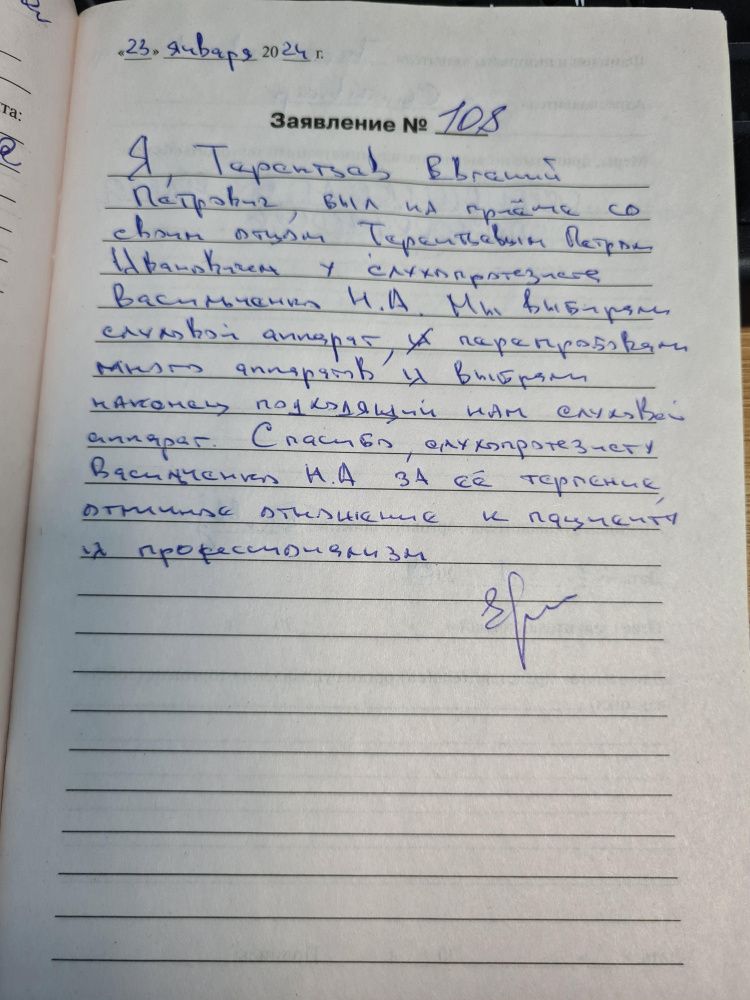 «23» января 2024 г.
Заявление № 108
Я, Тарантцев Евгений
Петрович, был на приёме со
своим отцом Тарантцевым Петром
Ивановичем у слухопротезиста
Васильченко Н.А. Мы выбирали
слуховой аппарат, и перепробовали
много аппаратов и выбрали
наконец подходящий нам слуховой
аппарат. Спасибо, слухопротезисту
Васильченко Н.А за её терпение,
отличное отношение к пациенту
и профессионализм
та: